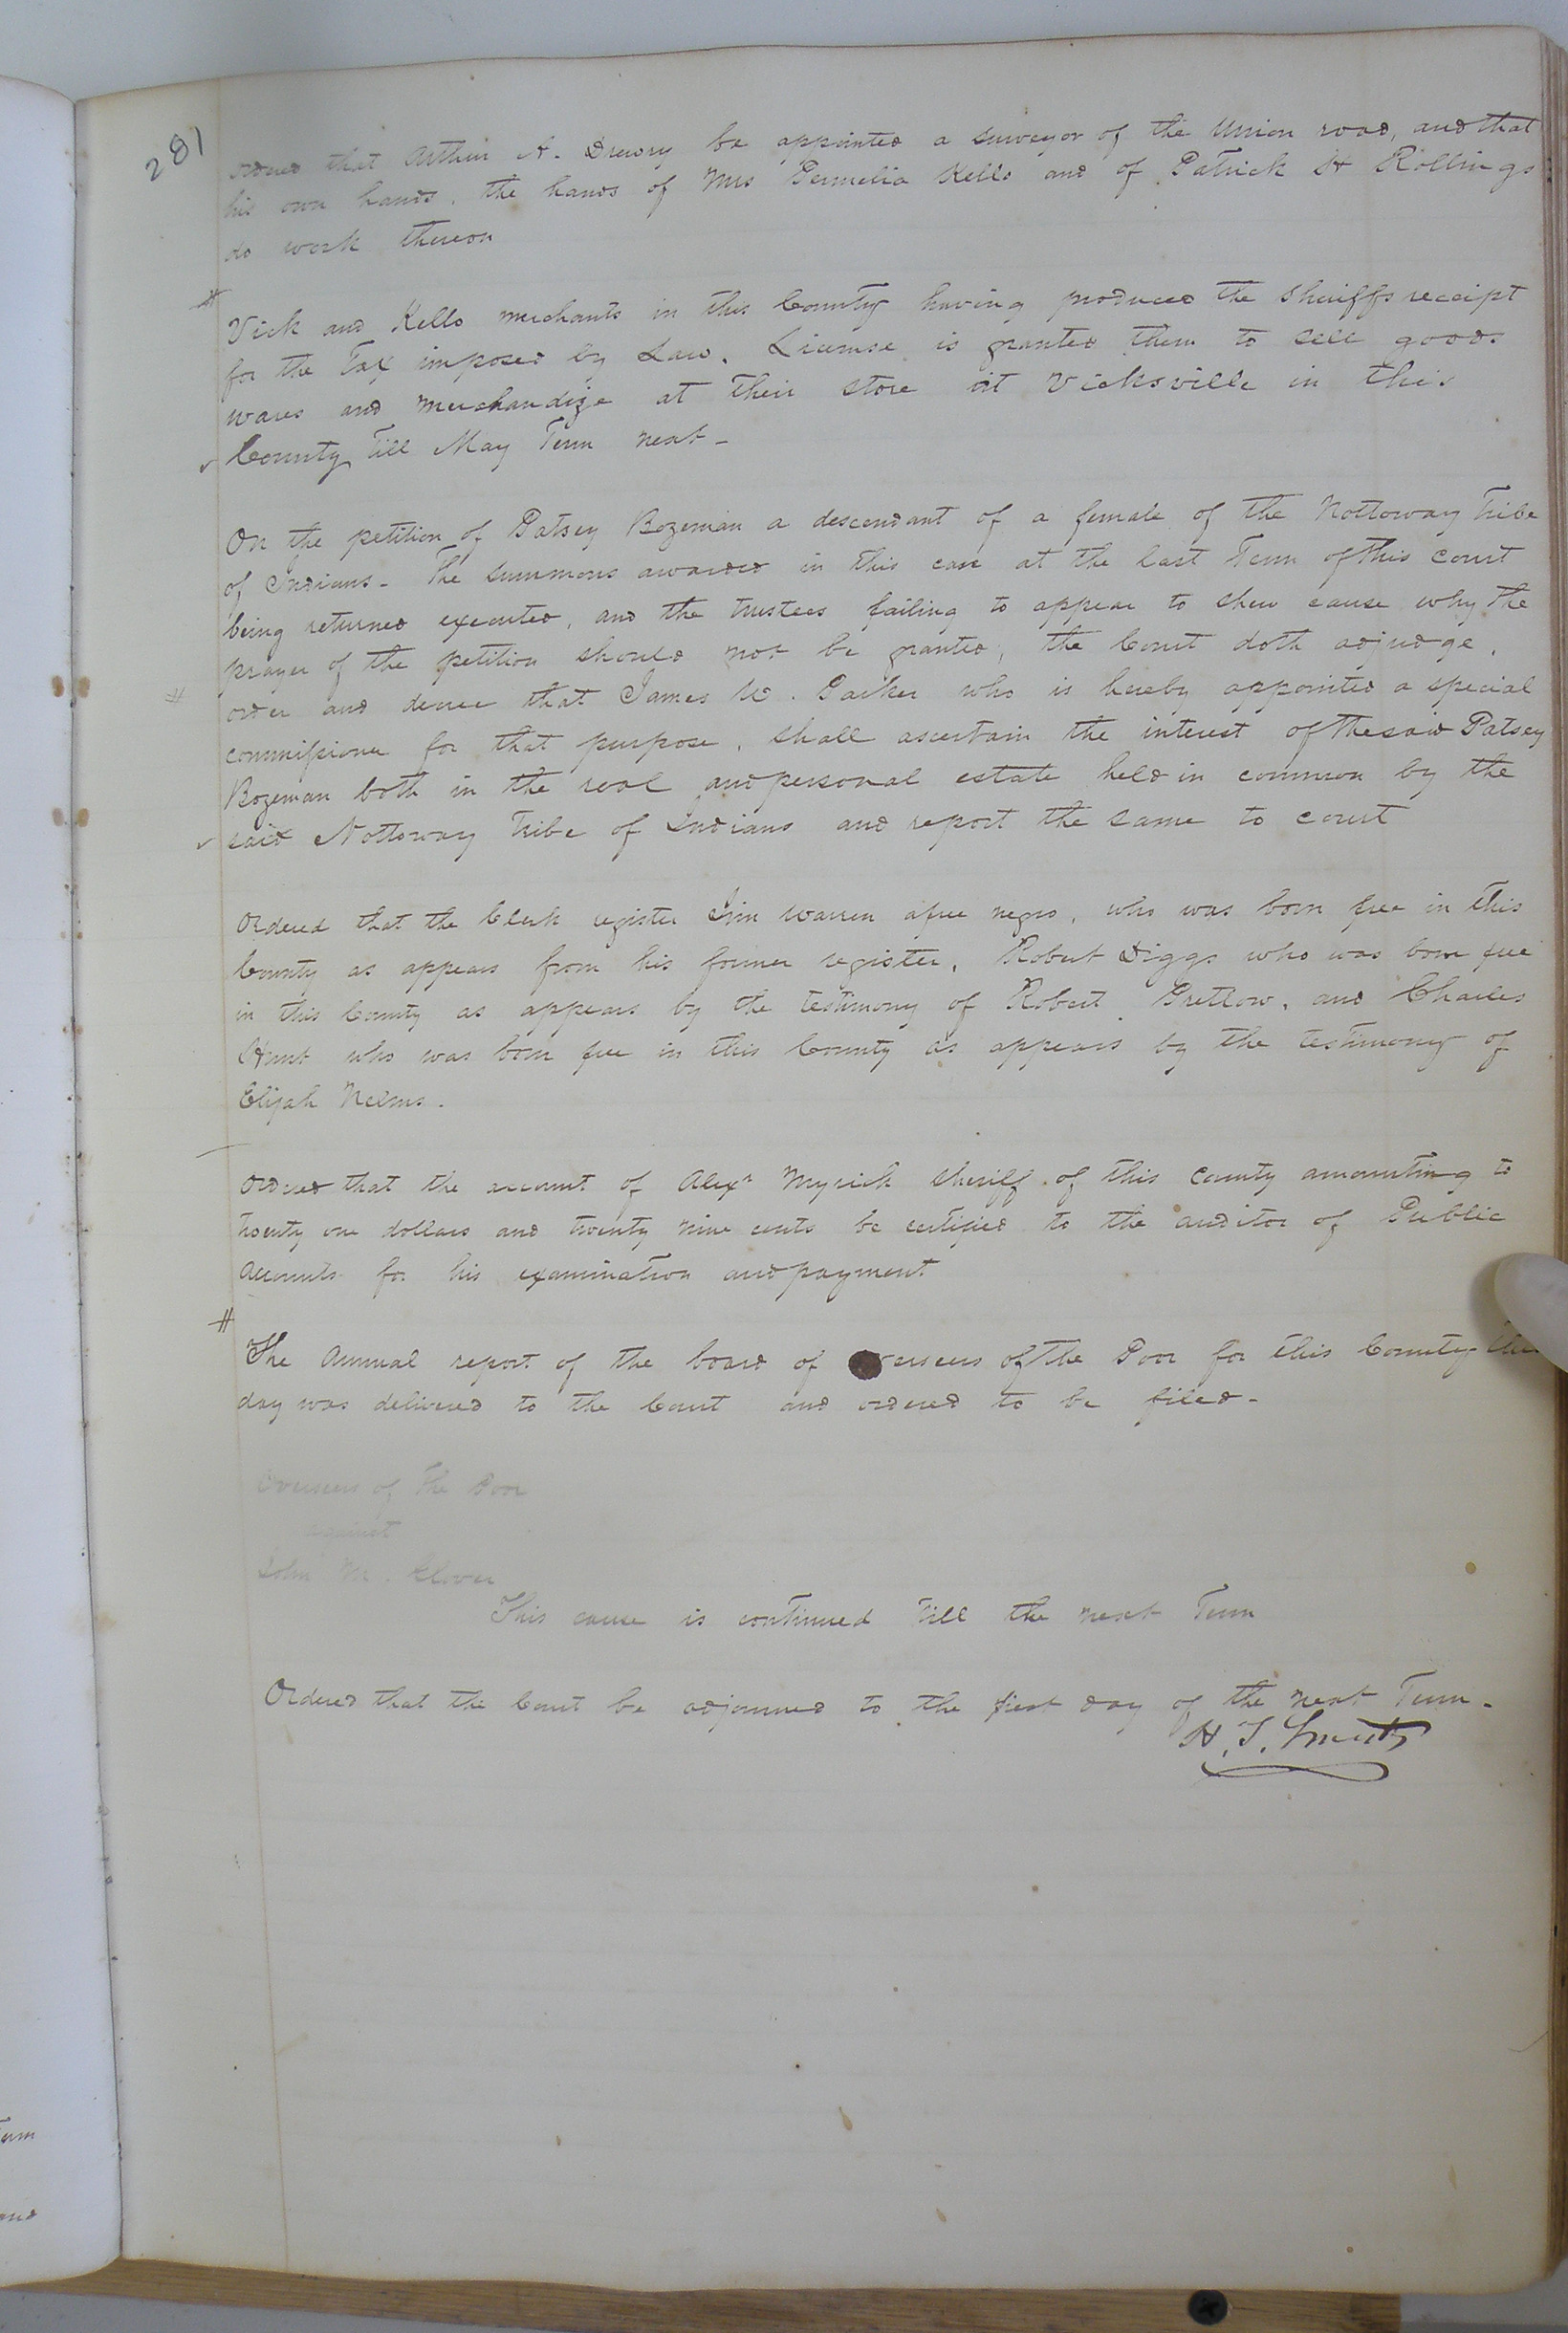 281
ordered that Arthur A. Drewry be appointed a surveyor of the Union road, and that
his own hands, the hands of Mrs Permelia Kello and of Patrick H Rollings
do work thereon
#
Vick and Kello merchants in this County having produced the Sheriffs receipt
for the Tax imposed by Law, License is granted them to sell goods
wares and merchandize at their store at Vicksville in this
County till May Term next -
On the petition of Patsey Bozeman a descendant of a female of the Nottoway Tribe
of Indians - The summons awarded in this case at the last Term of this court
being returned executed, and the trustees failing to appear to shew cause why the
prayer of the petition should not be granted, the Court doth adjudge,
order and decree that James W. Parker who is hereby appointed a special
commissioner for that purpose, shall ascertain the interest of the said Patsey
Bozeman both in the real and personal estate held in common by the
said Nottoway Tribe of Indians and report the same to court
Ordered that the Clerk register Jim Warren a free negro, who was born free in this
County as appears from his former register, Robert Diggs who was born free
in this County as appears by the testimony of Robert Pretlow, and Charles
Hunt who was born free in this County as appears by the testimony of
Elijah Nelms.
Ordered that the account of Alexr Myrick Sheriff of this County amounting to
twenty one dollars and twenty nine cents be certified to the auditor of Public
accounts for his examination and payment
#
The Annual report of the board of overseers of the Poor for this County this
day was delivered to the Court and ordered to be filed -
Overseers of the Poor
against
John M. Clover
This cause is continued till the next Term
Ordered that the Court be adjourned to the first day of the next Term -
Term
and